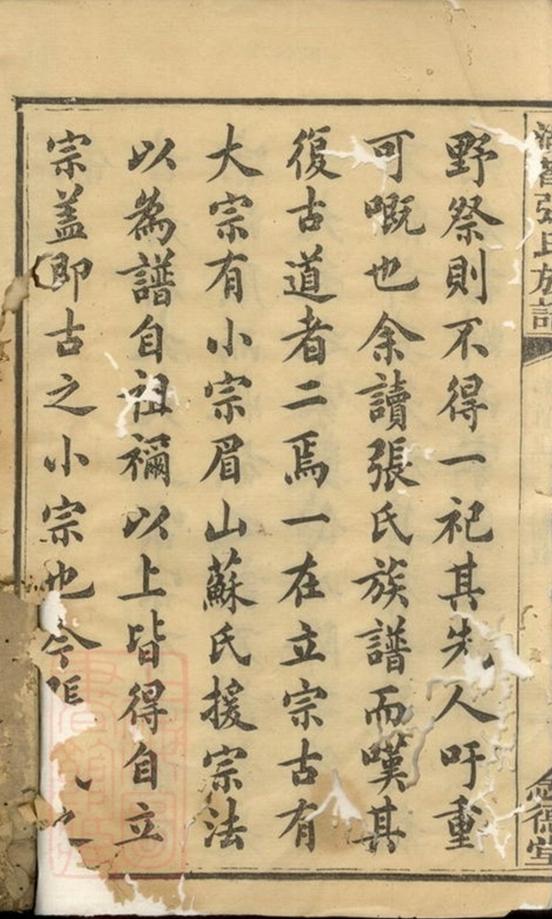 張氏族譜
念德堂
野祭則不得一祀其先人吁重
可嘅也余讀張氏族譜而嘆其
復古道者二焉一在立宗古有
大宗有小宗眉山蘇氏援宗法
以為譜自祖禰以上皆得自立
宗蓋即古之小宗也今 之